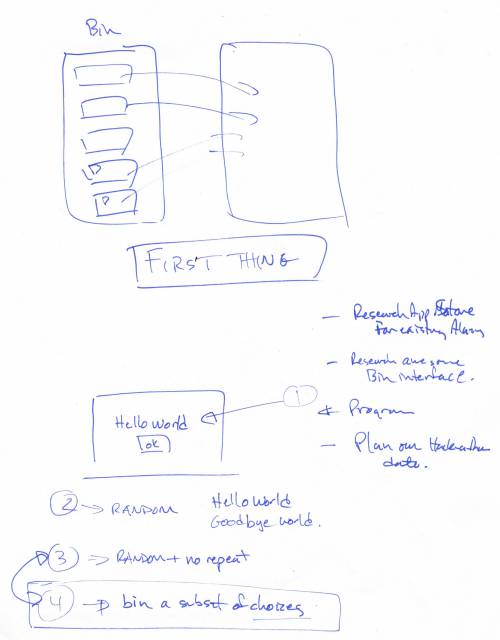 Bin
D
D
FIRST THING
— Research App Store
For existing Alarm
— Research awesome
Bin interface.
1
Hello world
ok
* Program
— Plan our
date.
2 → RANDOM Hello world
Goodbye world.
3 ⇒ RANDOM + no repeat
4 → bin a subset of choices